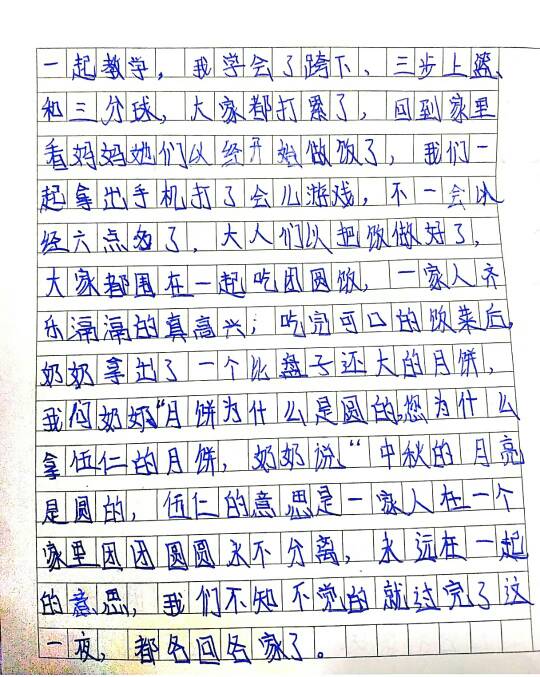 一起教学，我学会了跨下、三步上篮、
和三分球，大家都打累了，回到家里
看妈妈她们以经开始做饭了，我们一
起拿出手机打了会儿游戏，不一会以
经六点多了，大人们以把饭做好了，
大家都围在一起吃团圆饭，一家人齐
乐滆滆的真高兴；吃完可口的饭菜后，
奶奶拿出了一个比盘子还大的月饼，
我问奶奶“月饼为什么是圆的，您为什么
拿伍仁的月饼，奶奶说，“中秋的月亮
是圆的，伍仁的意思是一家人在一个
家里团团圆圆永不分离，永远在一起
的意思，我们不知不觉的就过完了这
一夜，都各回各家了。